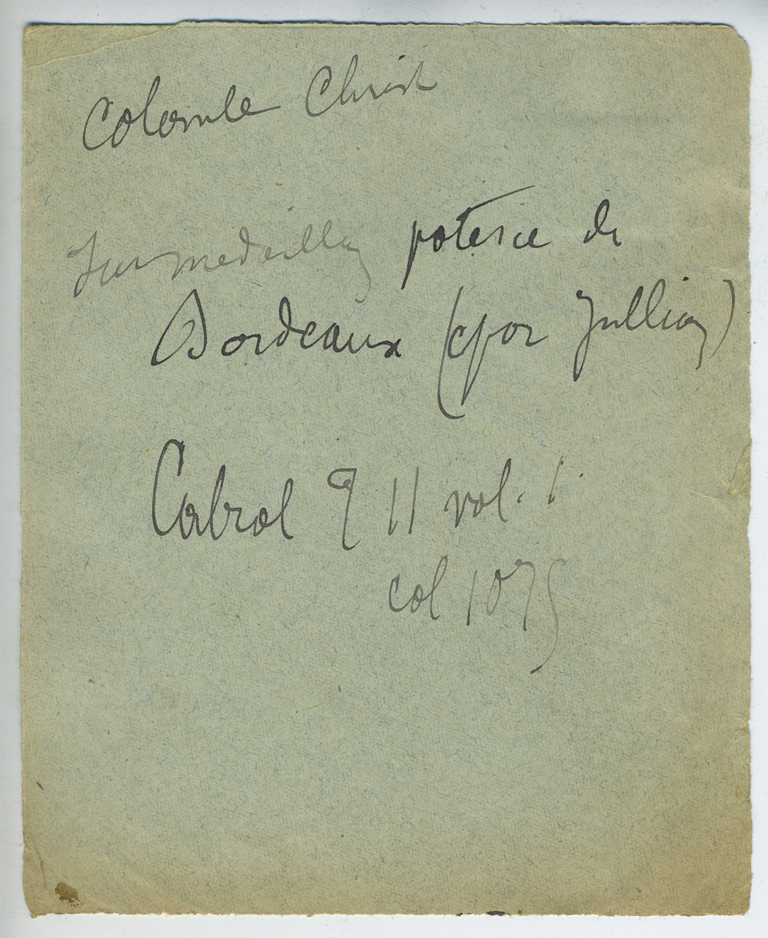 Colombe Christ
Sur medaillon poterie de
Bordeaux (cf par Jullian)
Cabrol T II vol. 1.
col 1075